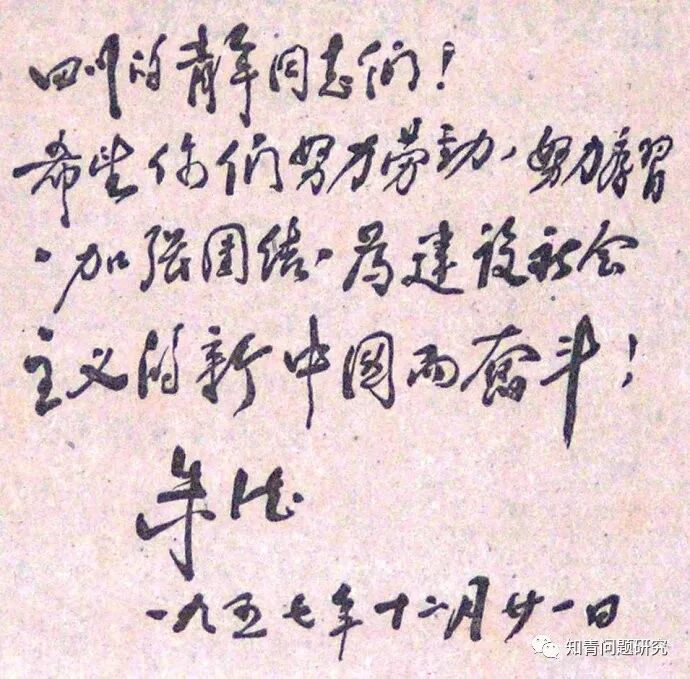 四川的青年同志们！
希望你们努力劳动、努力学習
、加強团结、为建设社会
主义的新中国而奋斗！
朱德
一九五七年十二月廿一日
知青问题研究